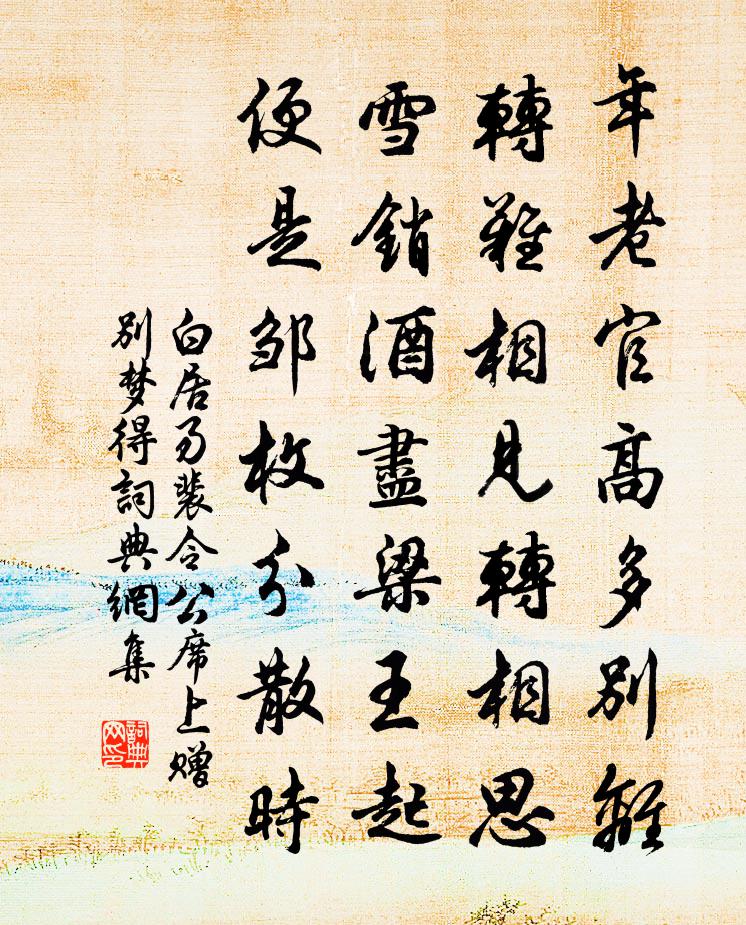 年老官高多別離
轉難相見轉相思
雪銷酒盡梁王起
便是邹枚分散時
白居易裴令公席上赠
別梦得詞典網集
詞典
网印